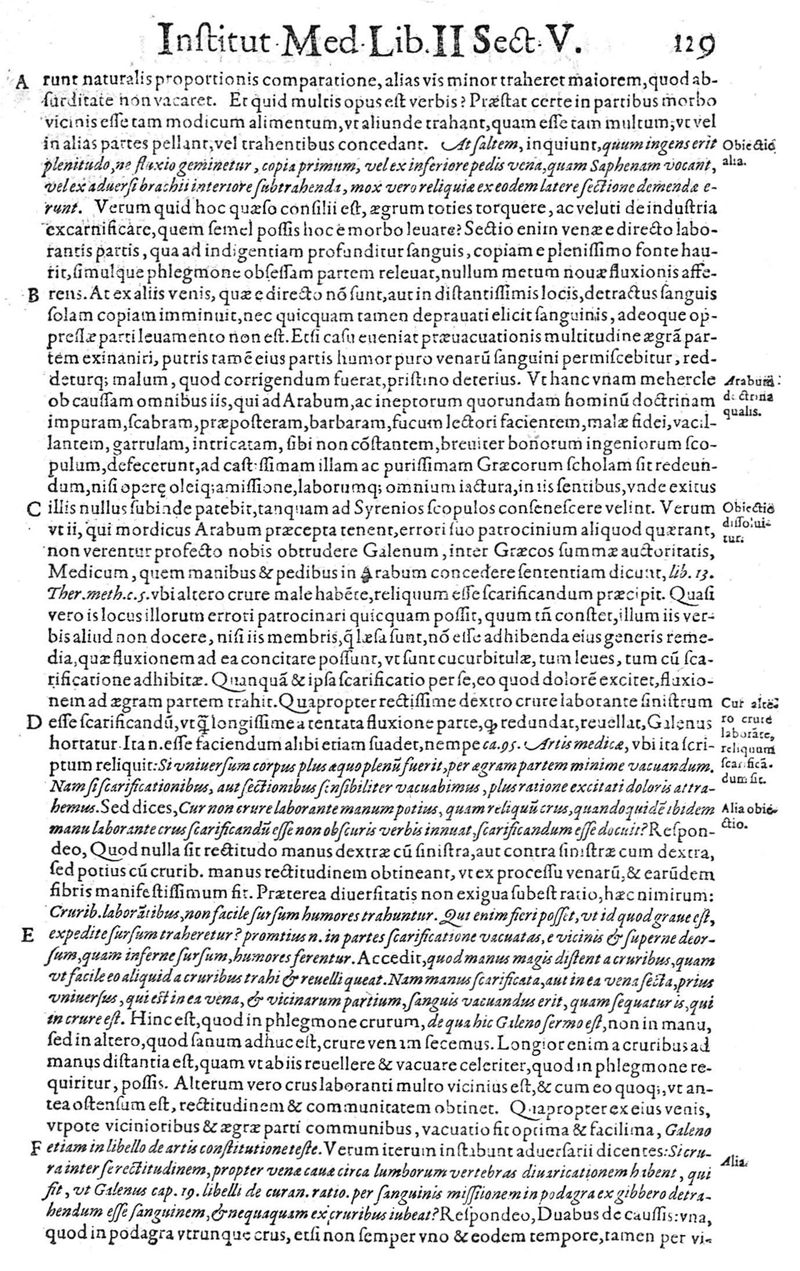 Inſtitut·Med·Lib.II Sect·V. 129
A runt naturalis proportionis comparatione, alias vis minor traheret maiorem, quod ab-
ſurditate non vacaret. Et quid multis opus eſt verbis? Præſtat certe in partibus morbo
vicinis eſſe tam modicum alimentum, vt aliunde trahant, quam eſſe tam multum, vt vel
in alias partes pellant, vel trahentibus concedant. At ſaltem, inquiunt, quum ingens erit Obiectiō
plenitudo, ne fluxio geminetur, copia primum, vel ex inferiore pedis vena, quam Saphenam vocant, alia.
vel ex aduerſi brachii interiore ſubtrahenda, mox vero reliquia ex eodem latere ſectione demenda e-
runt. Verum quid hoc quæſo conſilii eſt, ægrum toties torquere, ac veluti de induſtria
excarnificare, quem ſemel poſſis hoc e morbo leuare? Sectio enim venæ e directo labo-
rantis partis, qua ad indigentiam profunditur ſanguis, copiam e pleniſſimo fonte hau-
rit, ſimulque phlegmone obſeſſam partem releuat, nullum metum nouæ fluxionis affe-
B rens. At ex aliis venis, quæ e directo nō ſunt, aut in diſtantiſſimis locis, detractus ſanguis
ſolam copiam imminuit, nec quicquam tamen deprauati elicit ſanguinis, adeoque op-
preſſæ parti leuamento non eſt. Etſi caſu eueniat præ vacuationis multitudine ægrā par-
tem exinaniri, putris tamē eius partis humor puro venarū ſanguini permiſcebitur, red-
deturq; malum, quod corrigendum fuerat, priſtino deterius. Vt hanc vnam mehercle Arabum
ob cauſſam omnibus iis, qui ad Arabum, ac ineptorum quorundam hominū doctrinam doctrina
impuram, ſcabram, præpoſteram, barbaram, fucum lectori facientem, malæ fidei, vacil- qualis.
lantem, garrulam, intricatam, ſibi non cōſtantem, breuiter bonorum ingeniorum ſco-
pulum, defecerunt, ad caſtiſſimam illam ac puriſſimam Græcorum ſcholam ſit redeun-
dum, niſi operę oleiq; amiſſione, laborumq; omnium iactura, in iis ſentibus, vnde exitus
C illis nullus ſubinde patebit, tanquam ad Syrenios ſcopulos conſeneſcere velint. Verum Obiectiō
vt ii, qui mordicus Arabum præcepta tenent, errori ſuo patrocinium aliquod quærant, diſſolui-
non verentur profecto nobis obtrudere Galenum, inter Græcos ſummæ auctoritatis, tur.
Medicum, quem manibus & pedibus in Arabum concedere ſententiam dicunt, lib. 13.
Ther. meth. c. 5. vbi altero crure male habēte, reliquum eſſe ſcarificandum præcipit. Quaſi
vero is locus illorum errori patrocinari quicquam poſſit, quum tñ conſtet, illum iis ver-
bis aliud non docere, niſi iis membris, q̄ læſa ſunt, nō eſſe adhibenda eius generis reme-
dia, quæ fluxionem ad ea concitare poſſunt, vt ſunt cucurbitulæ, tum leues, tum cū ſca-
rificatione adhibitæ. Quanquā & ipſa ſcarificatio per ſe, eo quod dolorē excitet, fluxio-
nem ad ægram partem trahit. Quapropter rectiſſime dextro crure laborante ſiniſtrum Cur alte-
D eſſe ſcarificandū, vt q̄ longiſſime a tentata fluxione parte, ꝙ redundat, reuellat, Galenus ro crure
hortatur. Ita n. eſſe faciendum alibi etiam ſuadet, nempe ca. 95. Artis medicæ, vbi ita ſcri- laborāte, reliquum
ptum reliquit: Si vniuerſum corpus plus æquo plenū fuerit, per ægram partem minime vacuandum. ſcarificā-
Nam ſi ſcarificationibus, aut ſectionibus ſenſibiliter vacuabimus, plus ratione excitati doloris attra- dum ſit.
hemus. Sed dices, Cur non crure laborante manum potius, quam reliquū crus, quandoquidē ibidem Alia obie-
manu laborante crus ſcarificandū eſſe non obſcuris verbis innuat, ſcarificandum eſſe docuit? Reſpon- ctio.
deo, Quod nulla ſit rectitudo manus dextræ cū ſiniſtra, aut contra ſiniſtræ cum dextra,
ſed potius cū crurib. manus rectitudinem obtineant, vt ex proceſſu venarū, & earūdem
fibris manifeſtiſſimum fit. Præterea diuerſitatis non exigua ſubeſt ratio, hæc nimirum:
Crurib. laborātibus, non facile ſurſum humores trahuntur. Qui enim fieri poſſet, vt id quod graue eſt,
E expedite ſurſum traheretur? promtius n. in partes ſcarificatione vacuatas, e vicinis & ſuperne deor-
ſum, quam inferne ſurſum, humores ferentur. Accedit, quod manus magis diſtent a cruribus, quam
vt facile eo aliquid a cruribus trahi & reuelli queat. Nam manus ſcarificata, aut in ea vena ſecta, prius
vniuerſus, qui eſt in ea vena, & vicinarum partium, ſanguis vacuandus erit, quam ſequatur is, qui
in crure eſt. Hinc eſt, quod in phlegmone crurum, de qua hic Galeno ſermo eſt, non in manu,
ſed in altero, quod ſanum adhuc eſt, crure venam ſecemus. Longior enim a cruribus ad
manus diſtantia eſt, quam vt ab iis reuellere & vacuare celeriter, quod in phlegmone re-
quiritur, poſſis. Alterum vero crus laboranti multo vicinius eſt, & cum eo quoq;, vt an-
tea oſtenſum eſt, rectitudinem & communitatem obtinet. Quapropter ex eius venis,
vtpote vicinioribus & ægræ parti communibus, vacuatio fit optima & facilima, Galeno
F etiam in libello de artis conſtitutione teſte. Verum iterum inſtabunt aduerſarii dicentes: Si cru- Alia.
ra inter ſe rectitudinem, propter venæ cauæ circa lumborum vertebras diuaricationem habent, qui
fit, vt Galenus cap. 19. libelli de curan. ratio. per ſanguinis miſſionem in podagra ex gibbero detra-
hendum eſſe ſanguinem, & nequaquam ex cruribus iubeat? Reſpondeo, Duabus de cauſſis: vna,
quod in podagra vtrunque crus, etſi non ſemper vno & eodem tempore, tamen per vi-